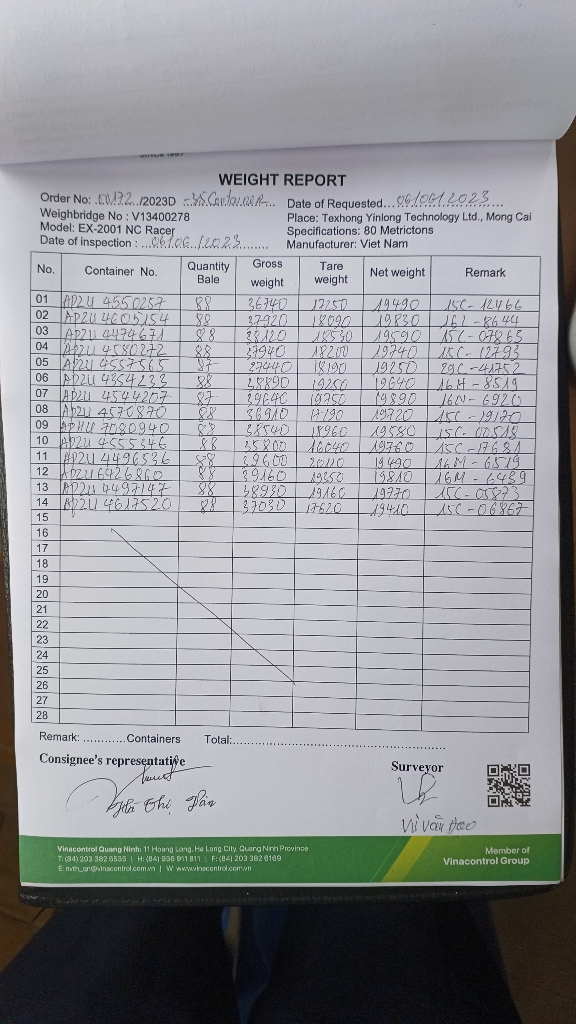 WEIGHT REPORT
Order No: 00172 /2023D - 35 Container
Date of Requested 06/06/2023
Weighbridge No : V13400278
Place: Texhong Yinlong Technology Ltd., Mong Cai
Model: EX-2001 NC Racer
Specifications: 80 Metrictons
Date of inspection : 06/06/2023
Manufacturer: Viet Nam
No. Container No. Quantity Bale Gross weight Tare weight Net weight Remark
01 AP2U 4550257 88 36740 17250 19490 15C-12466
02 AP2U 4605154 88 37920 18090 19830 16L-8644
03 AP2U 4474671 88 38120 18530 19590 15C-07863
04 AP2U 4580272 88 37940 18200 19740 15C-12793
05 AP2U 4557565 87 37440 18190 19250 29C-41752
06 AP2U 4354233 88 38890 19250 19640 16H-8519
07 AP2U 4544207 87 39640 19750 19890 16N-6920
08 AP2U 4570870 88 36910 17190 19720 15C-19170
09 APHU 7080940 88 38540 18960 19580 15C-00518
10 AP2U 4555346 88 35800 16040 19760 15C-17681
11 AP2U 4496536 88 39600 20110 19490 16M-6519
12 AP2U 6426860 88 39160 19350 19810 16M-6489
13 AP2U 4497147 88 38930 19160 19770 15C-05873
14 AP2U 4617520 88 37030 17620 19410 15C-06867
15
16
17
18
19
20
21
22
23
24
25
26
27
28
Remark: ............Containers Total:
Consignee's representative
Surveyor
Thị
Vinacontrol Quang Ninh: 11 Hoang Long, Ha Long City, Quang Ninh Province
T: (84) 203 382 6535 | H: (84) 936 911 811 | F: (84) 203 382 6169
E: nvth_qn@vinacontrol.com.vn | W: www.vinacontrol.com.vn
Member of
Vinacontrol Group